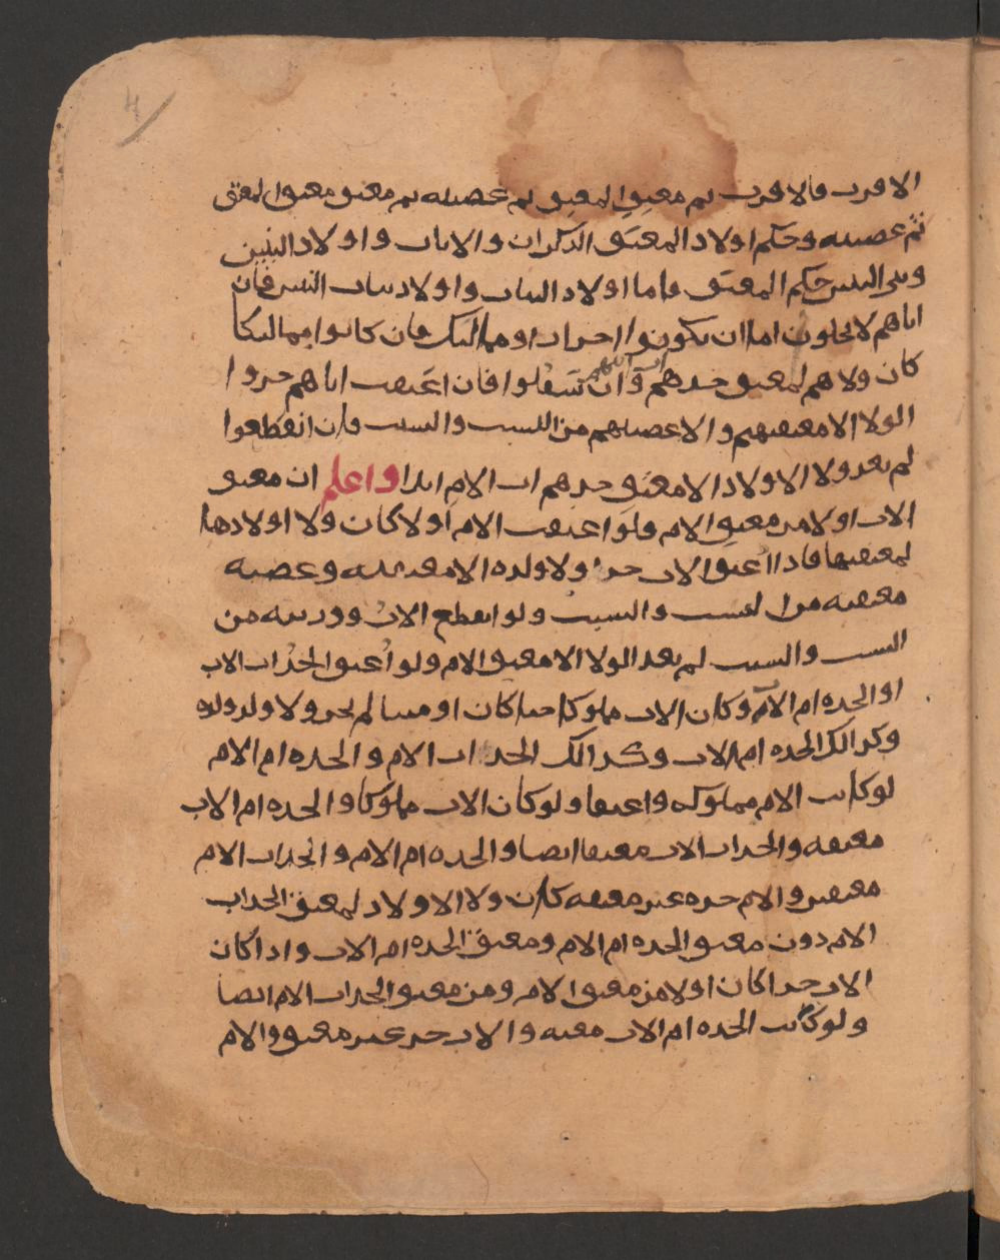 4
الاقرب فالاقرب ثم معتق المعتق ثم عصبته ثم معتق معتق المعتق
ثم عصبته وحكم اولاد المعتق الذكران والاناث واولاد البنين
وبني البنين حكم المعتق واما اولاد البنات واولاد بنات البنين فان
اباهم لا يخلون اما ان يكونوا احرارا او مماليك فان كانوا مماليكا
كان ولاهم لمعتق جدهم اب امهم وان سفلوا فان اعتقت اباهم جروا
الولا الا معتقيهم والا عصباتهم من النسب والسبب فان انقطعوا
لم يعد ولا الاولاد الا معتق جدهم اب الام ابدا واعلم ان معتق
الاب اولا من معتق الام ولو اعتقت الام اولا كان ولا اولادها
لمعتقيها فاذا أعتق الاب جر ولا ولده الا معتقه وعصبة
معتقه من النسب والسبب ولو انقطع الاب وورثته من
النسب والسبب لم يعد الولا الا معتق الام ولو أعتق الجد اب الاب
او الجدة ام الام وكان الاب مملوكا حيا كان او ميتا لم يجر ولا ولد ولده
وكذالك الجدة ام الاب وكذالك الجد اب الام والجدة ام الام
لو كانت الام مملوكة واعتقا ولو كان الاب مملوكا والجدة ام الاب
معتقة والجد اب الاب معتقا ايضا والجدة ام الام والجد اب الام
معتقين والام حرة غير معتقة كان ولا الاولاد لمعتق الجد اب
الام دون معتق الجدة ام الام ومعتق الجدة ام الاب واذا كان
الاب حرا كان اولا من معتق الام ومن معتق الجد اب الام ايضا
ولو كانت الجدة ام الاب معتقة والاب حر غير معتق والام